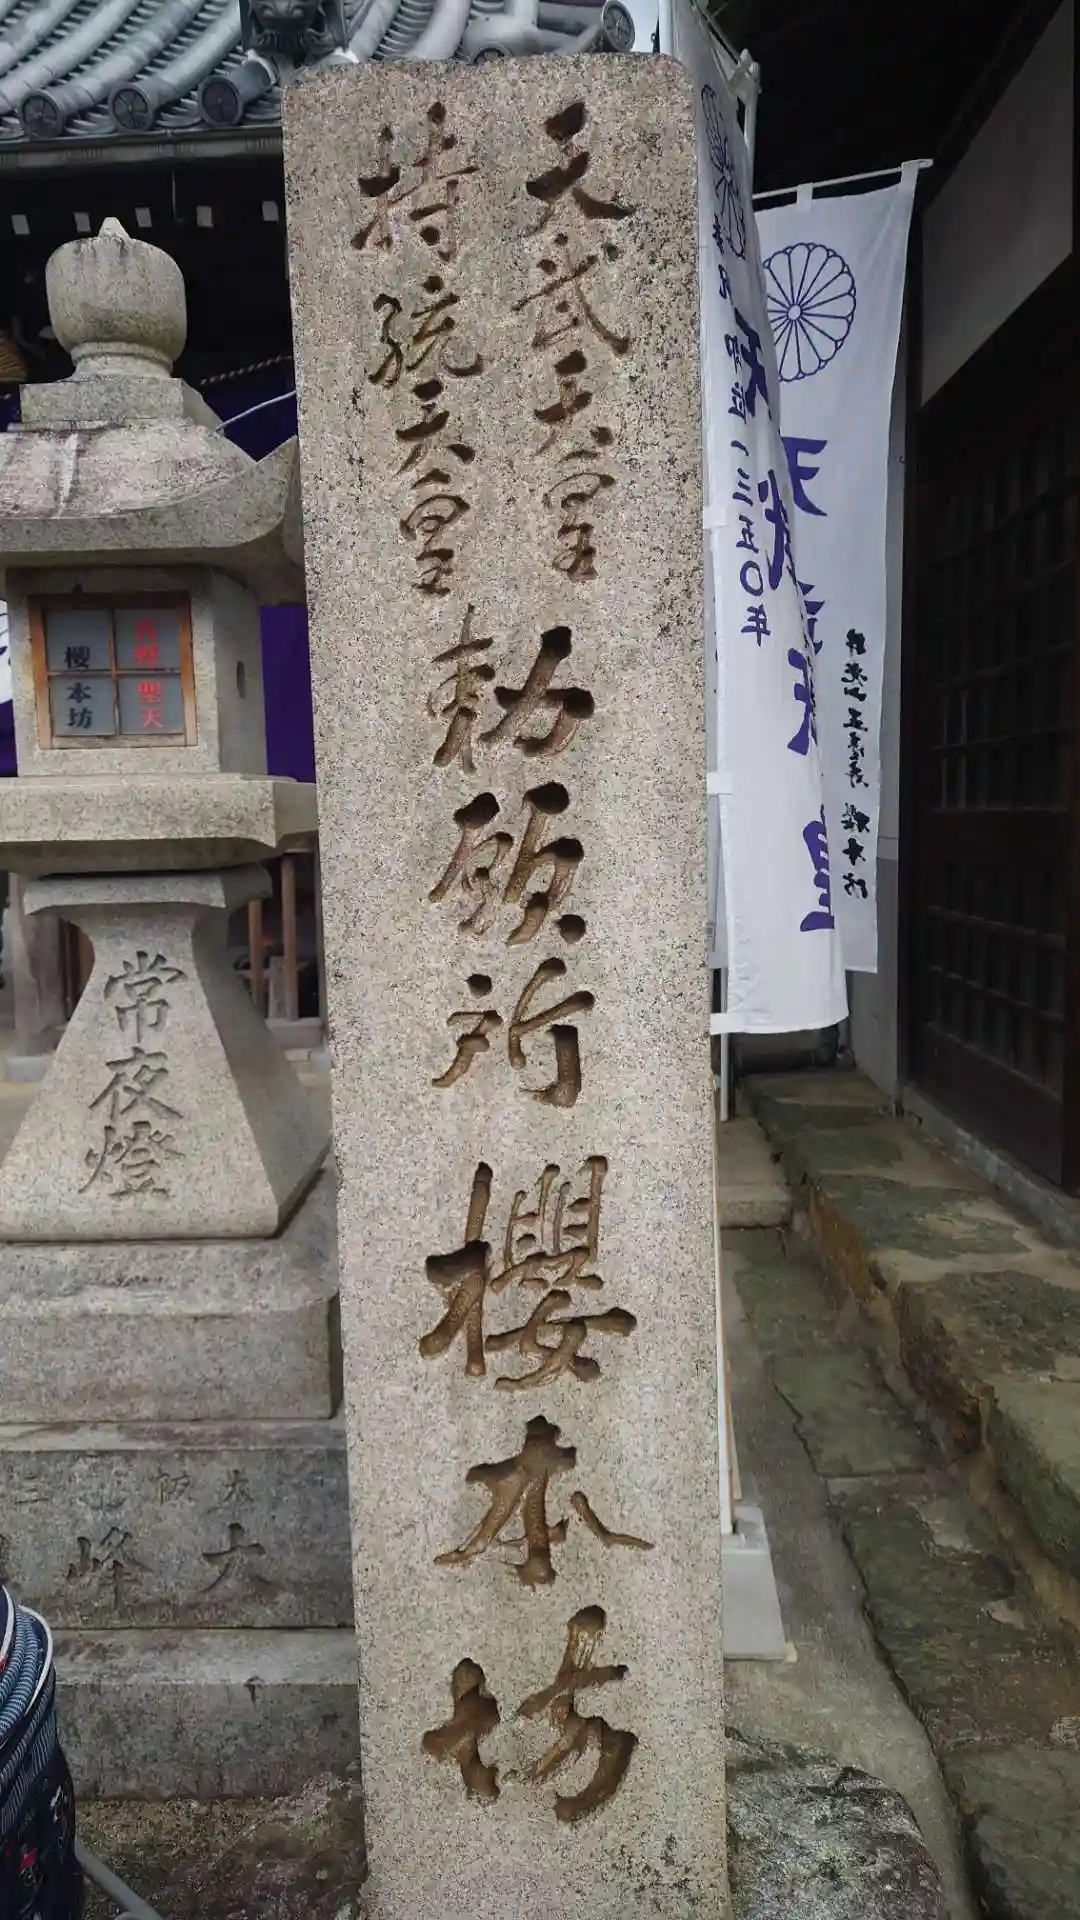 天武天皇
持統天皇
勅願所 櫻本坊
櫻本坊
聖天
常夜燈
大峰
一三五〇年
天武天皇
櫻本坊